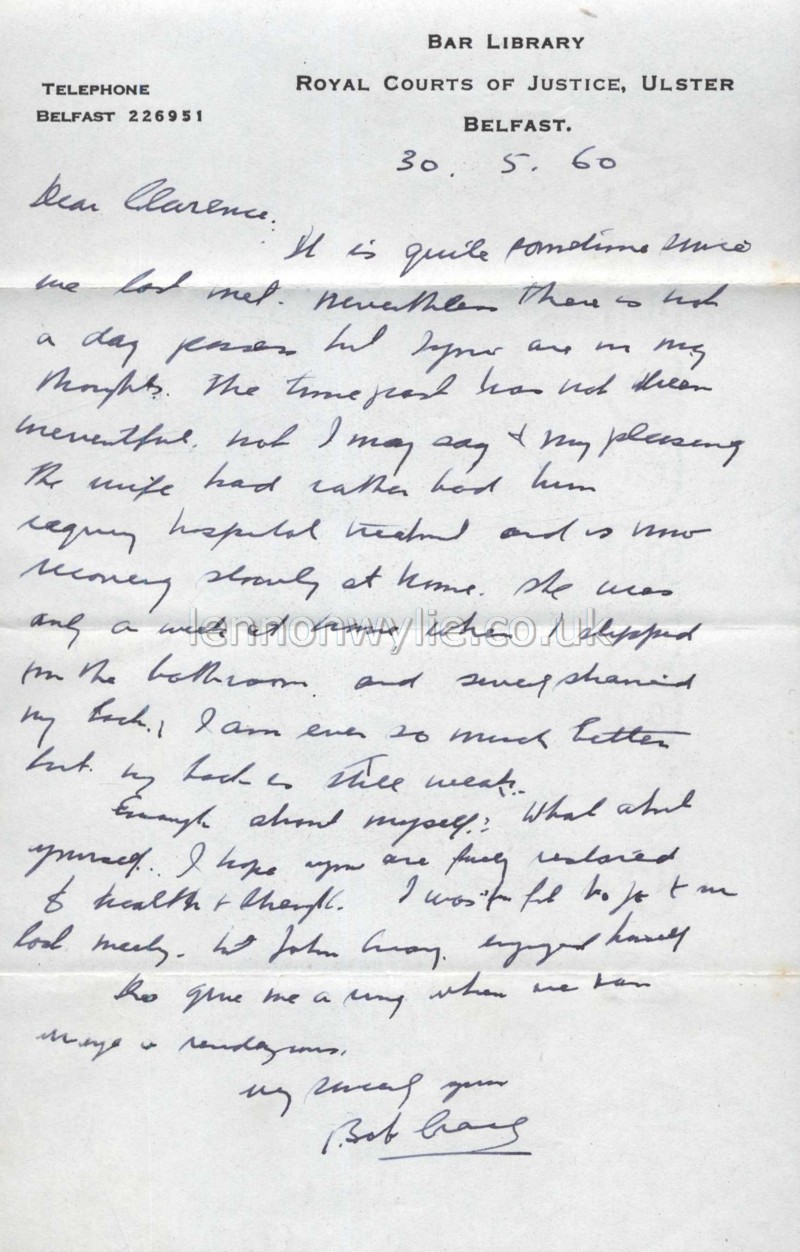 BAR LIBRARY
ROYAL COURTS OF JUSTICE, ULSTER
BELFAST.
TELEPHONE
BELFAST 226951
30. 5. 60
Dear Clarence,
It is quite sometime since
we last met. Nevertheless there is not
a day passes but you are in my
thoughts. The time past has not been
uneventful. not I may say to my pleasing
The wife had rather bad
requiring hospital treatment and is now
recovering slowly at home. She was
only a week at home when I slipped
in the bathroom and strained
my back. I am ever so much better
but my back is still weak.
Enough about myself. What about
yourself. I hope you are fully restored
to health & strength. I wasn't fit to go to our
last meeting. but John enjoyed himself
Do give me a ring when we can
arrange a rendezvous.
very sincerely yours
Bob
lennonwylie.co.uk